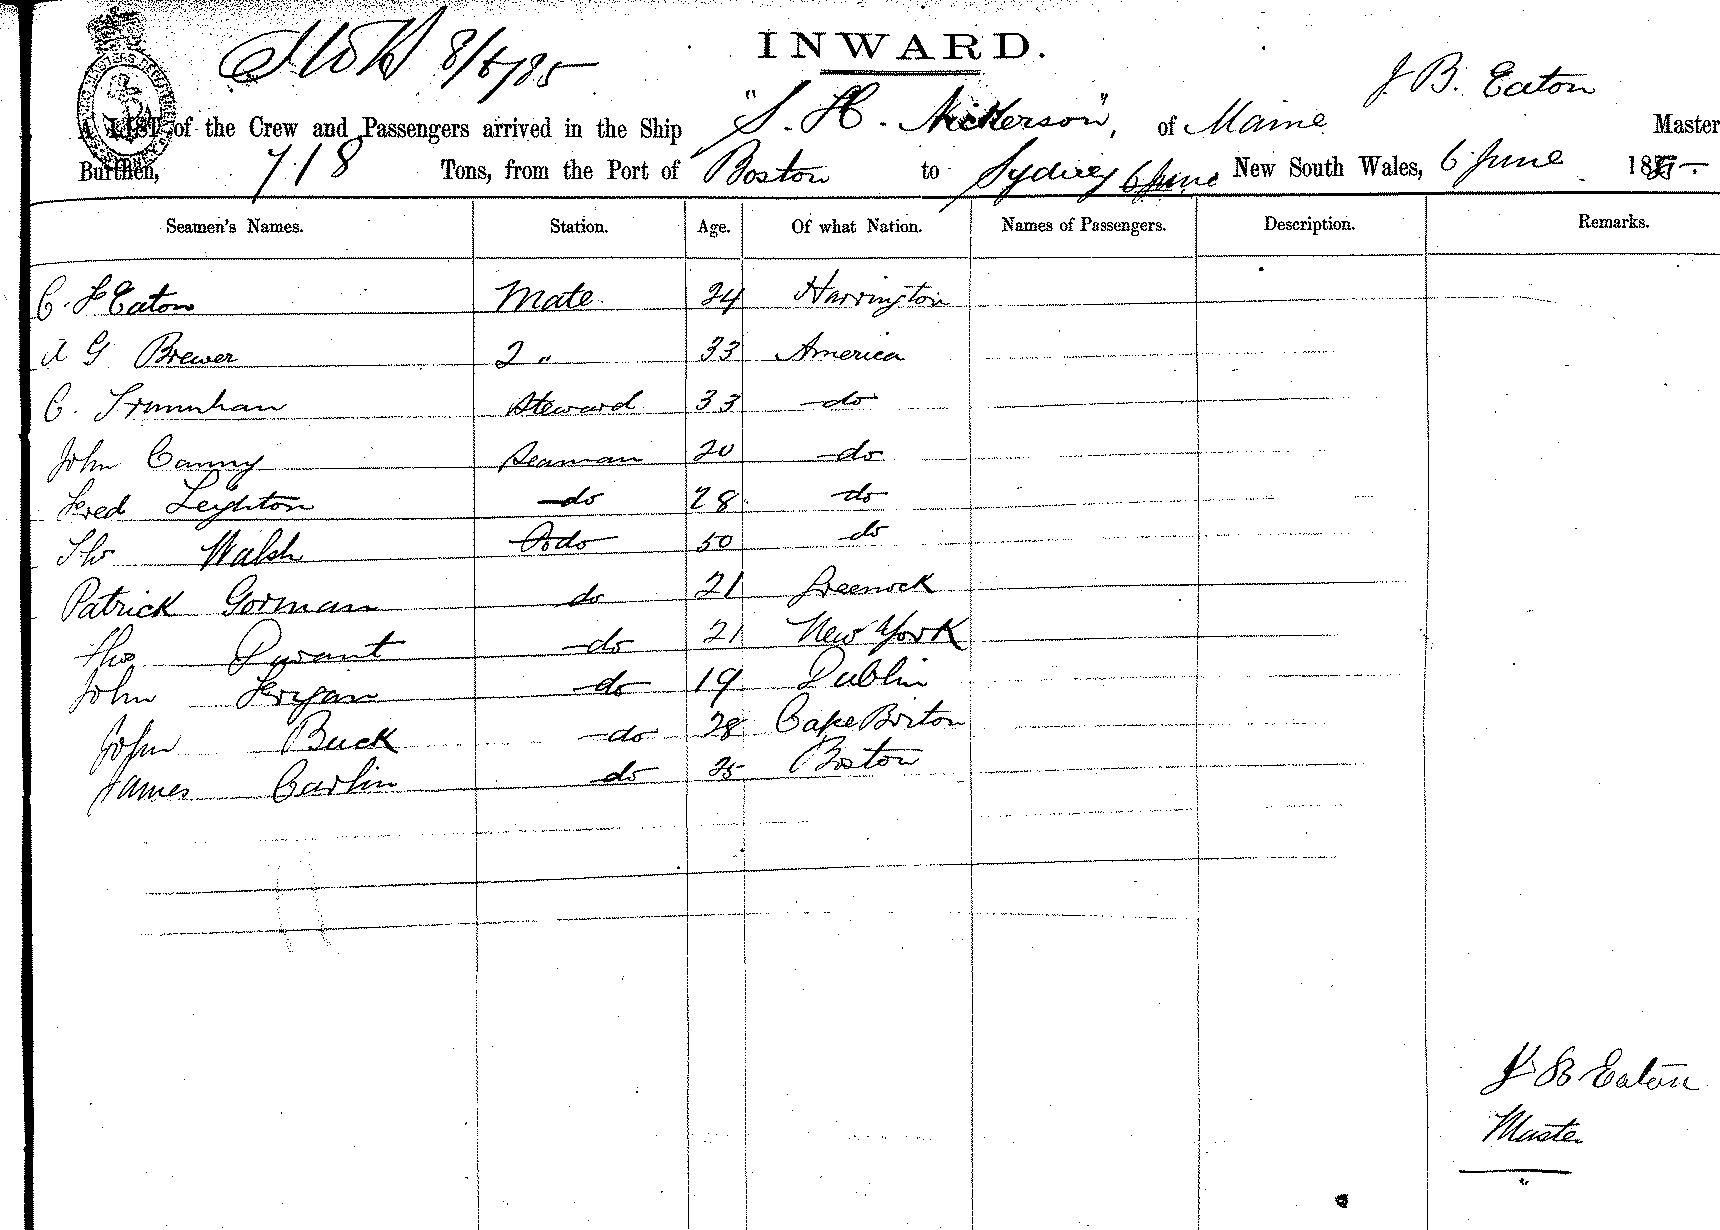 8/6/85
INWARD.
J B. Eaton
A LIST of the Crew and Passengers arrived in the Ship "S. H. Nickerson", of Maine Master
Burthen, 718 Tons, from the Port of Boston to Sydney 6 June New South Wales, 6 June 185
Seamen's Names. Station. Age. Of what Nation. Names of Passengers. Description. Remarks.
C. F Eaton Mate 24 Harrington
A G Brewer 2 " 33 America
C. Steward 33 do
John Canny Seaman 20 do
Fred Leighton do 28 do
Tho Walsh do 50 do
Patrick Gorman do 21 Greenock
Tho Durant do 21 New York
John do 19 Dublin
John Buck do 28 Cape Briton
James Carlin do 25 Boston
J B Eaton
Master